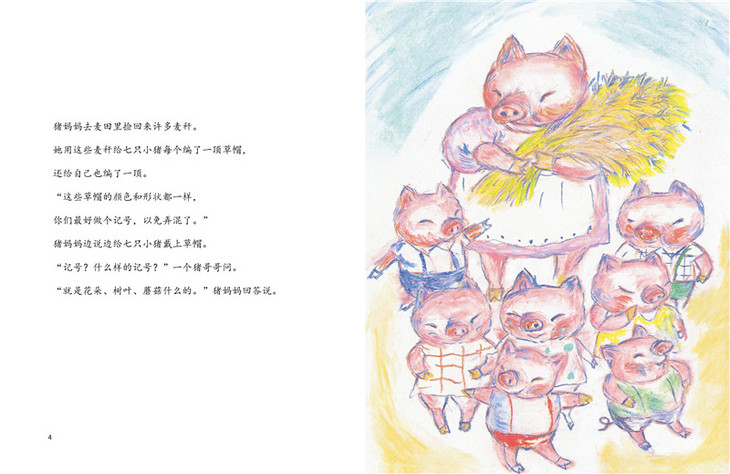 猪妈妈去麦田里捡回来许多麦秆。
她用这些麦秆给七只小猪每个编了一顶草帽，
还给自己也编了一顶。
“这些草帽的颜色和形状都一样，
你们最好做个记号，以免弄混了。”
猪妈妈边说边给七只小猪戴上草帽。
“记号？什么样的记号？”一个猪哥哥问。
“就是花朵、树叶、蘑菇什么的。”猪妈妈回答说。
4